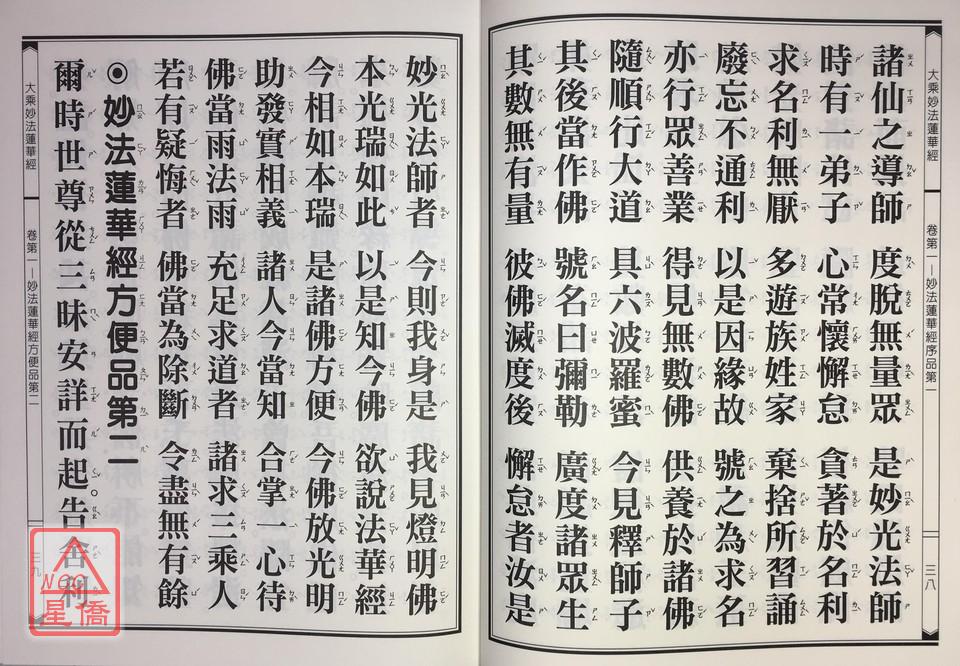 大乘妙法蓮華經
卷第一—妙法蓮華經序品第一
三八
諸仙之導師 度脫無量眾 是妙光法師
時有一弟子 心常懷懈怠 貪著於名利
求名利無厭 多遊族姓家 棄捨所習誦
廢忘不通利 以是因緣故 號之為求名
亦行眾善業 得見無數佛 供養於諸佛
隨順行大道 具六波羅蜜 今見釋師子
其後當作佛 號名曰彌勒 廣度諸眾生
其數無有量 彼佛滅度後 懈怠者汝是
妙光法師者 今則我身是 我見燈明佛
本光瑞如此 以是知今佛 欲說法華經
今相如本瑞 是諸佛方便 今佛放光明
助發實相義 諸人今當知 合掌一心待
佛當雨法雨 充足求道者 諸求三乘人
若有疑悔者 佛當為除斷 令盡無有餘
◎妙法蓮華經方便品第二
爾時世尊從三昧安詳而起。告舍利
大乘妙法蓮華經
卷第一—妙法蓮華經方便品第二
三九
NO9
星僑